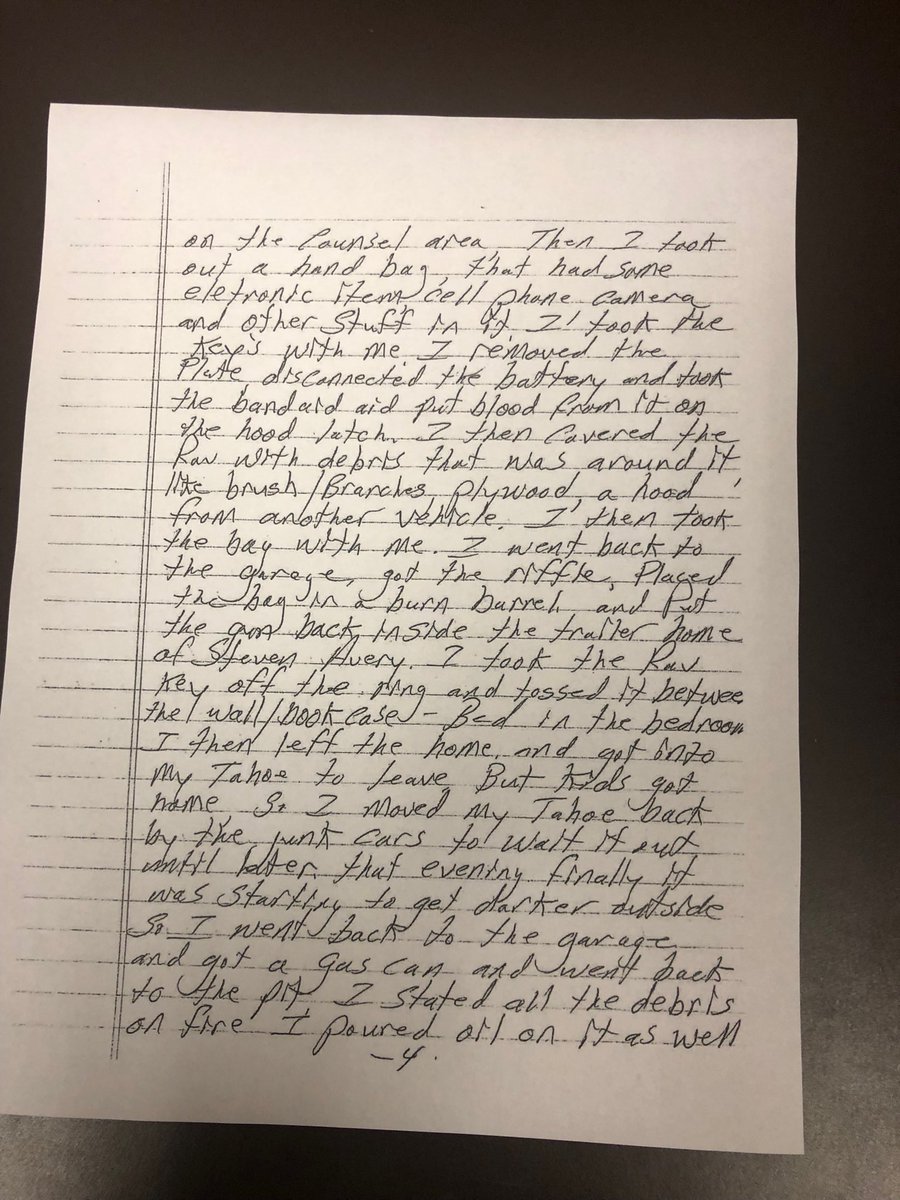 on the Counsel area, Then I took
out a hand bag, that had some
eletronic item, cell phone camera
and other stuff in it I took the
Key's with me I removed the
Plate, disconnected the battery and took
the bandaid aid put blood from it on
the hood latch. I then covered the
Rav with debris that was around it
like brush/Branches, plywood, a hood
from another vehicle. I then took
the bag with me. I went back to
the garage, got the riffle, Placed
the bag in a burn barrel, and Put
the gun back inside the trailer home
of Steven Avery. I took the Rav
Key off the ring and tossed it betwee
the wall/bookcase - Bed in the bedroom
I then left the home, and got into
My Tahoe to leave But kids got
home So I moved my Tahoe back
by the junk cars to wait it out
until later that evening finally it
was starting to get darker outside
So I went back to the garage
and got a gas can and went back
to the pit I stated all the debris
on fire I poured oil on it as well
-4.